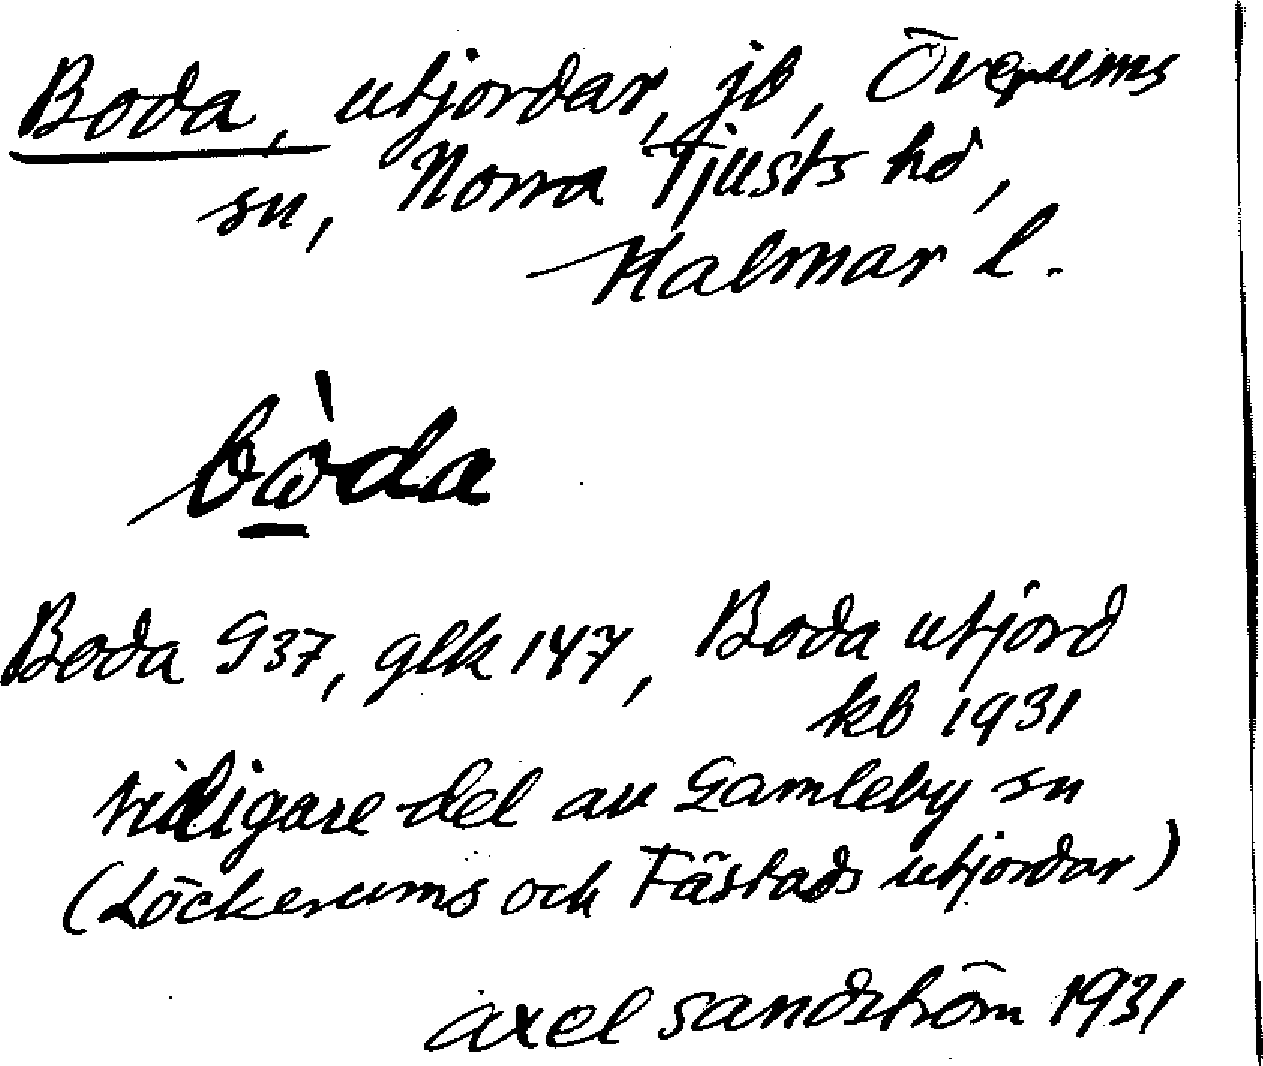 Boda, utjordar, jb, Överums
sn, Norra Tjusts hd,
Kalmar l.
bὼda
Boda G37, glk 147, Boda utjord
kb 1931
tidigare del av Gamleby sn
(Löckerums och Fästads utjordar)
Axel Sandström 1931